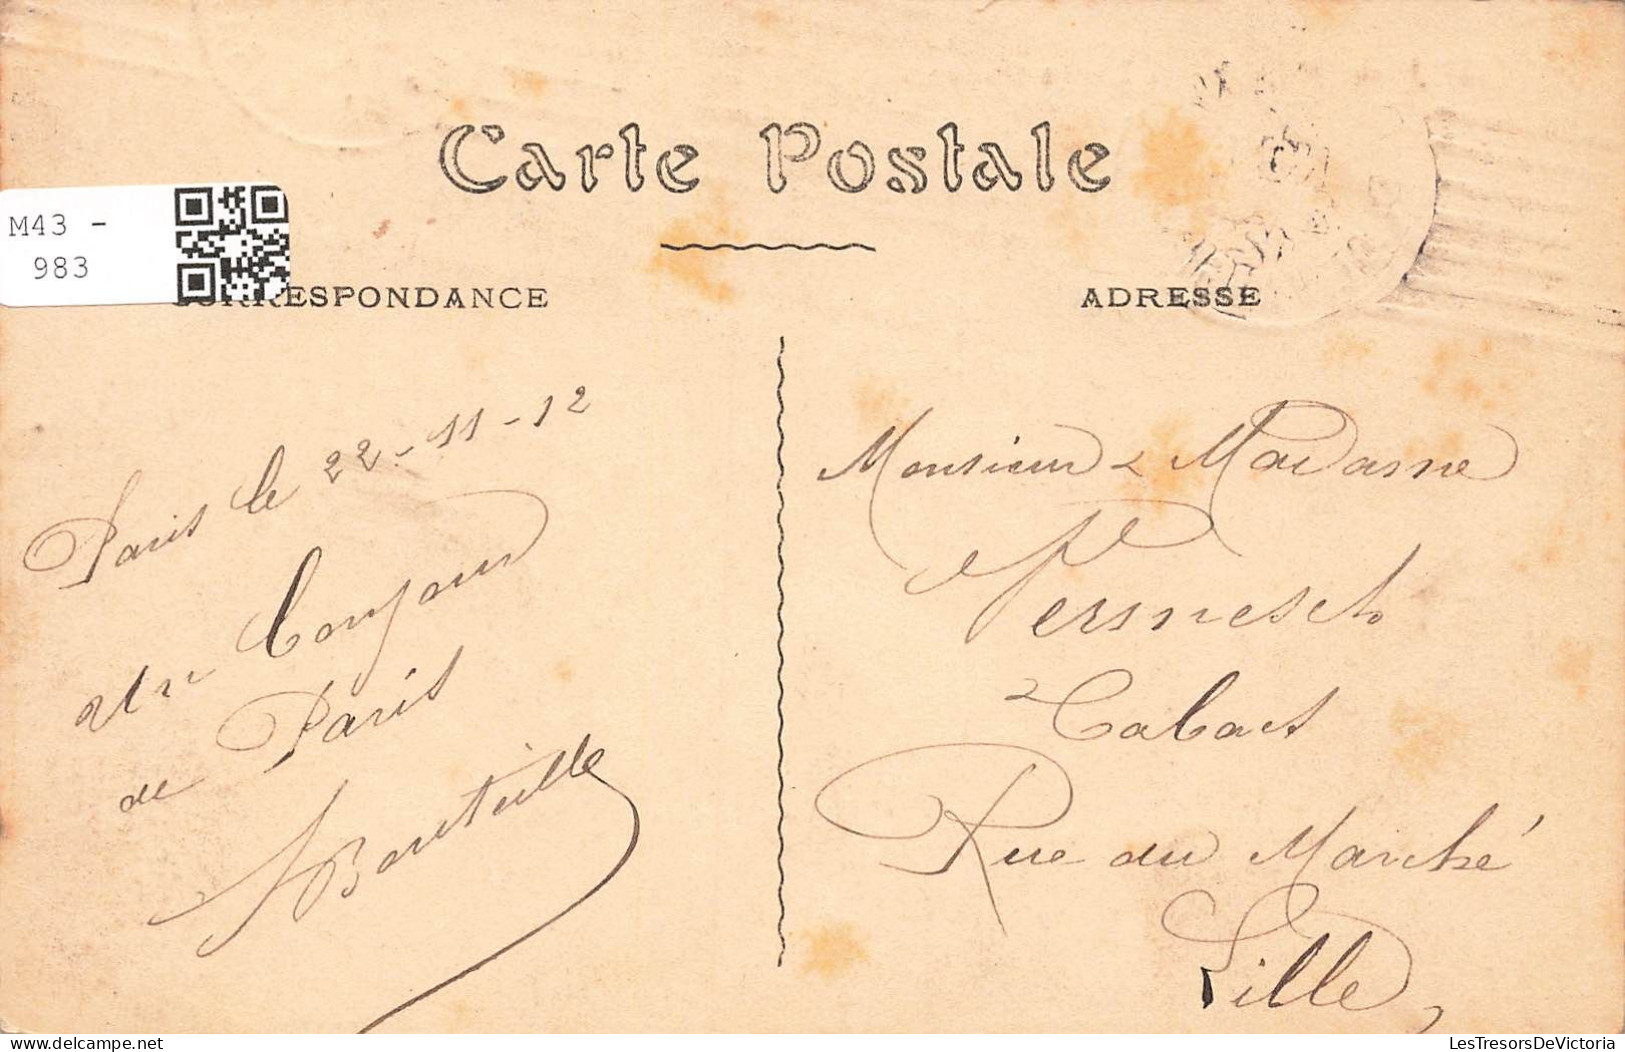 Carte Postale
M43 -
983
CORRESPONDANCE
ADRESSE
Paris le 22-11-12
Un Bonjour
de Paris
Bouteille
Monsieur & Madame
Tabacs
Rue du Marché
Lille
delcampe.net
LesTresorsDeVictoria